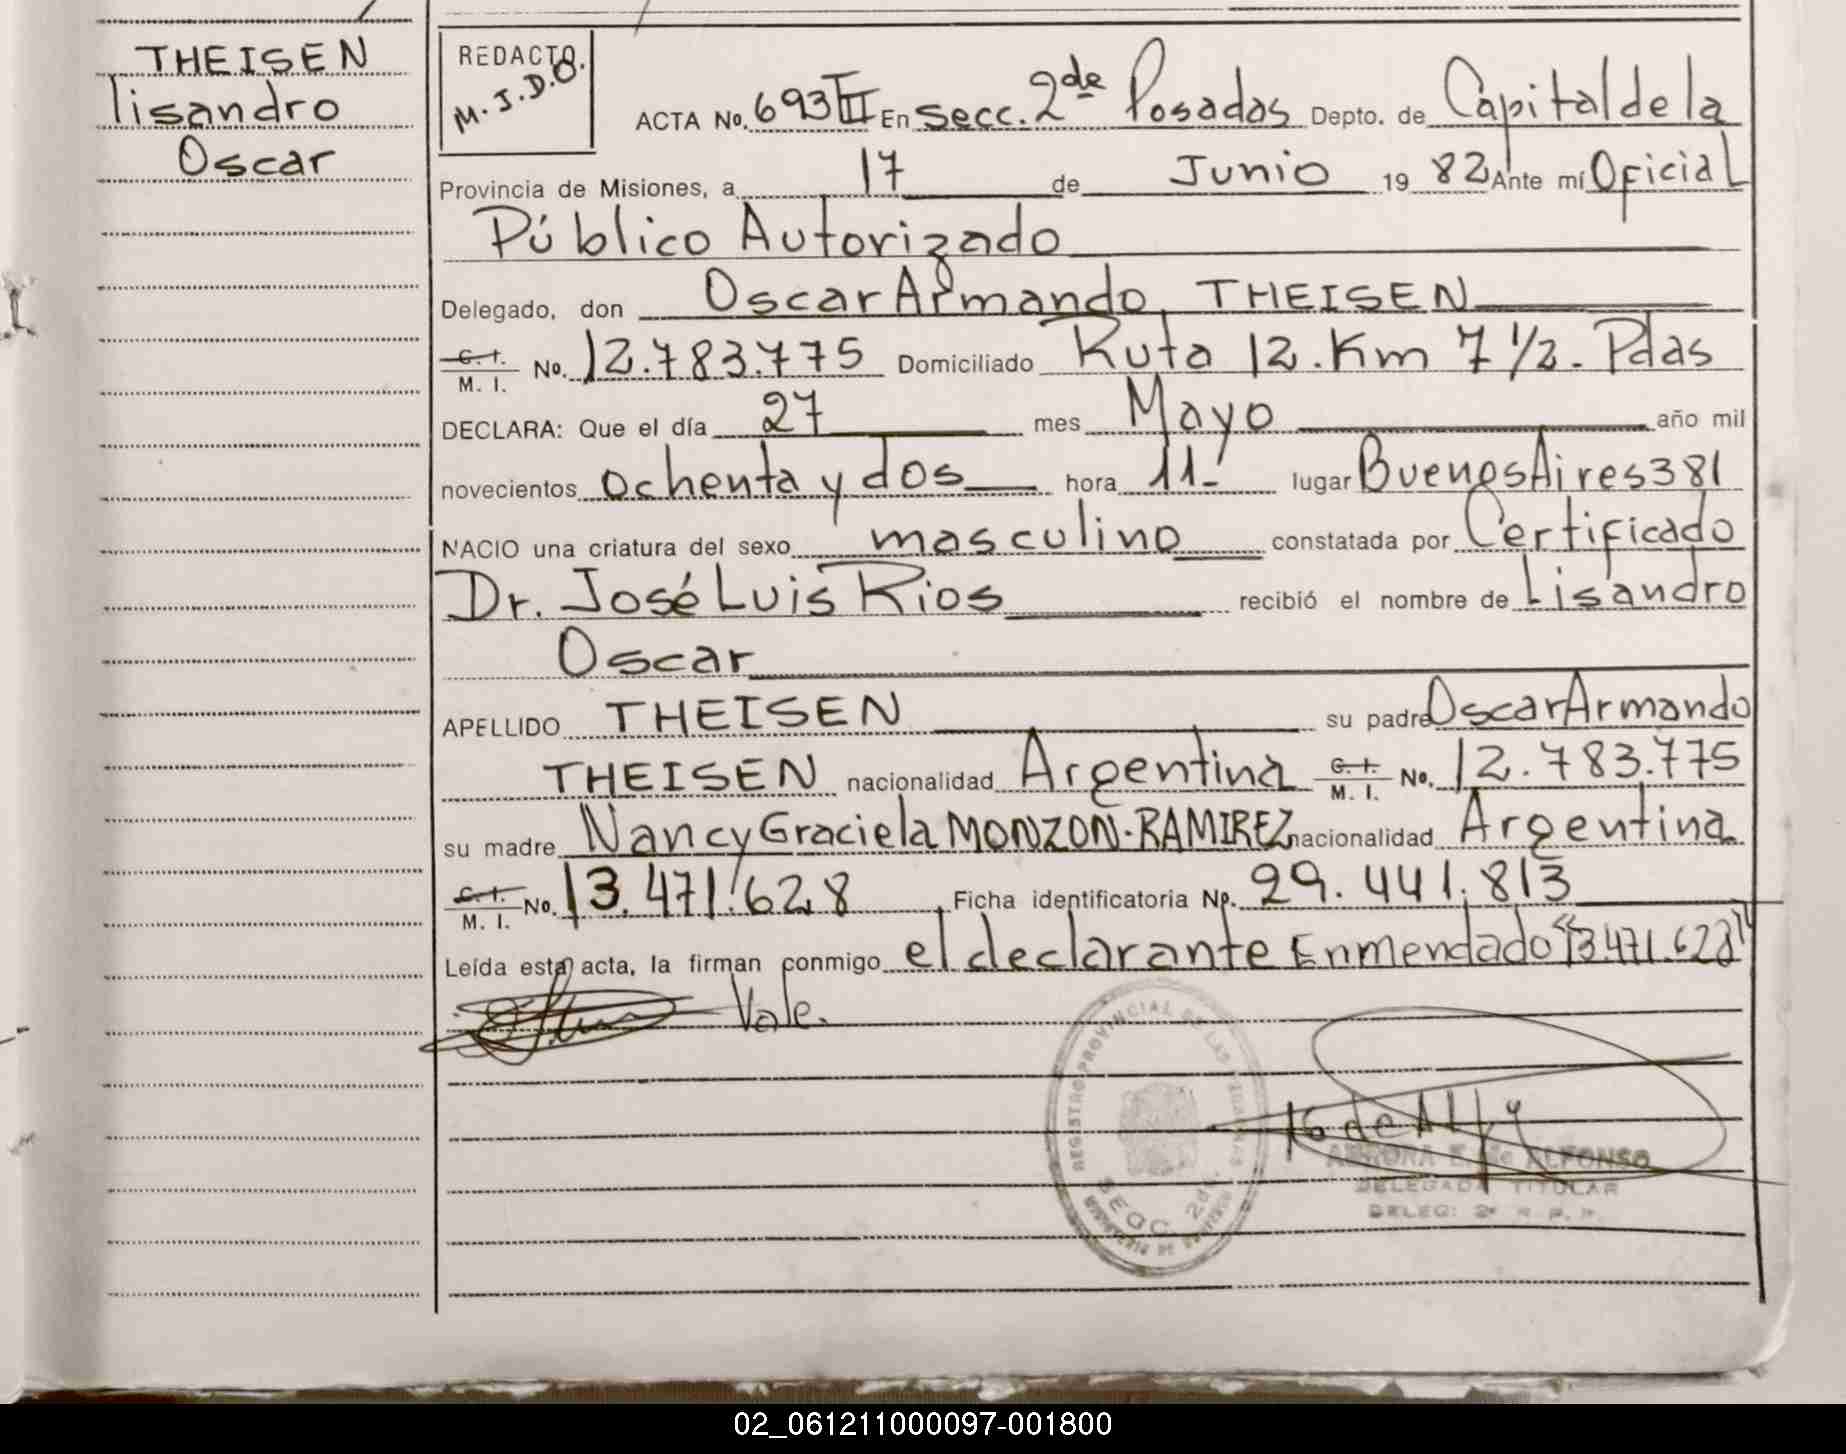 THEISEN
lisandro
Oscar
REDACTO.
M.J.D.O.
ACTA No. 693 III En Secc. 2da Posadas Depto. de Capital de la
Provincia de Misiones, a 17 de Junio 19 82 Ante mí Oficial
Público Autorizado
Delegado, don Oscar Armando THEISEN
C. I. M. I. No. 12.783.775 Domiciliado Ruta 12. Km 7 1/2. Pdas
DECLARA: Que el día 27 mes Mayo año mil
novecientos ochenta y dos hora 11- lugar Buenos Aires 381
NACIO una criatura del sexo masculino constatada por Certificado
Dr. José Luis Rios recibió el nombre de Lisandro
Oscar
APELLIDO THEISEN su padre Oscar Armando
THEISEN nacionalidad Argentina C. I. M. I. No. 12.783.775
su madre Nancy Graciela MONZON-RAMIREZ nacionalidad Argentina
C. I. M. I. No. 13.471.628 Ficha identificatoria No. 29.441.813
Leída esta acta, la firman conmigo el declarante Enmendado "13.471.628"
Vale.
REGISTRO PROVINCIAL DE LAS PERSONAS
SECC. 2da.
AURORA E. de ALFONSO
DELEGADA TITULAR
DELEG: 2ª R. P. P.
02_061211000097-001800